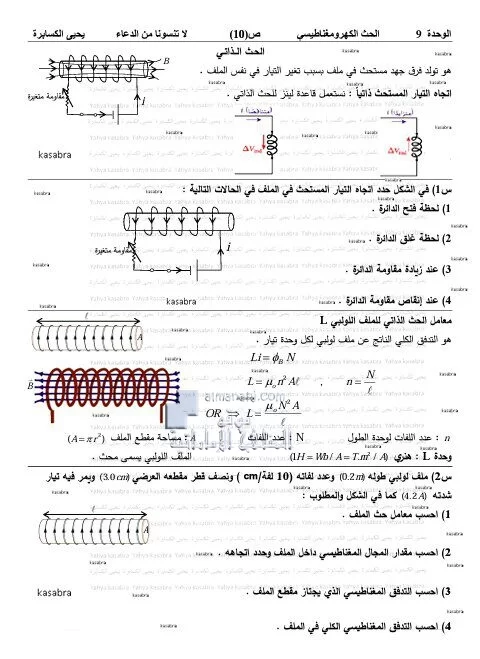 الوحدة 9 الحث الكهرومغناطيسي ص(10) لا تنسونا من الدعاء يحيى الكسابرة
الحث الذاتي
هو تولد فرق جهد مستحث في ملف بسبب تغير التيار في نفس الملف .
اتجاه التيار المستحث ذاتياً : نستعمل قاعدة لينز للحث الذاتي .
B
مقاومة متغيرة
i
i (متناقصا)
i (متزايدا)
ΔV ind
ΔV ind
kasabra
س1) في الشكل حدد اتجاه التيار المستحث في الملف في الحالات التالية :
1) لحظة فتح الدائرة .
2) لحظة غلق الدائرة .
3) عند زيادة مقاومة الدائرة .
4) عند إنقاص مقاومة الدائرة .
مقاومة متغيرة
i
kasabra
معامل الحث الذاتي للملف اللولبي L
هو التدفق الكلي الناتج عن ملف لولبي لكل وحدة تيار .
ℓ
A
B
Li = ϕ_B N
L = μ_o n² Aℓ , n = N/ℓ
OR ⇒ L = μ_o N² A / ℓ
almanahj.com
n : عدد اللفات لوحدة الطول N : عدد اللفات A : مساحة مقطع الملف (A = π r²)
وحدة L : هنري (1H = Wb / A = T.m² / A) الملف اللولبي يسمى محث .
س2) ملف لولبي طوله (0.2m) وعدد لفاته (10 لفة/cm) ونصف قطر مقطعه العرضي (3.0cm) ويمر فيه تيار
شدته (4.2A) كما في الشكل والمطلوب :
1) احسب معامل الحث .
2) احسب مقدار المجال المغناطيسي داخل الملف وحدد اتجاهه .
3) احسب التدفق المغناطيسي الذي يجتاز مقطع الملف .
kasabra
4) احسب التدفق المغناطيسي الكلي في الملف .